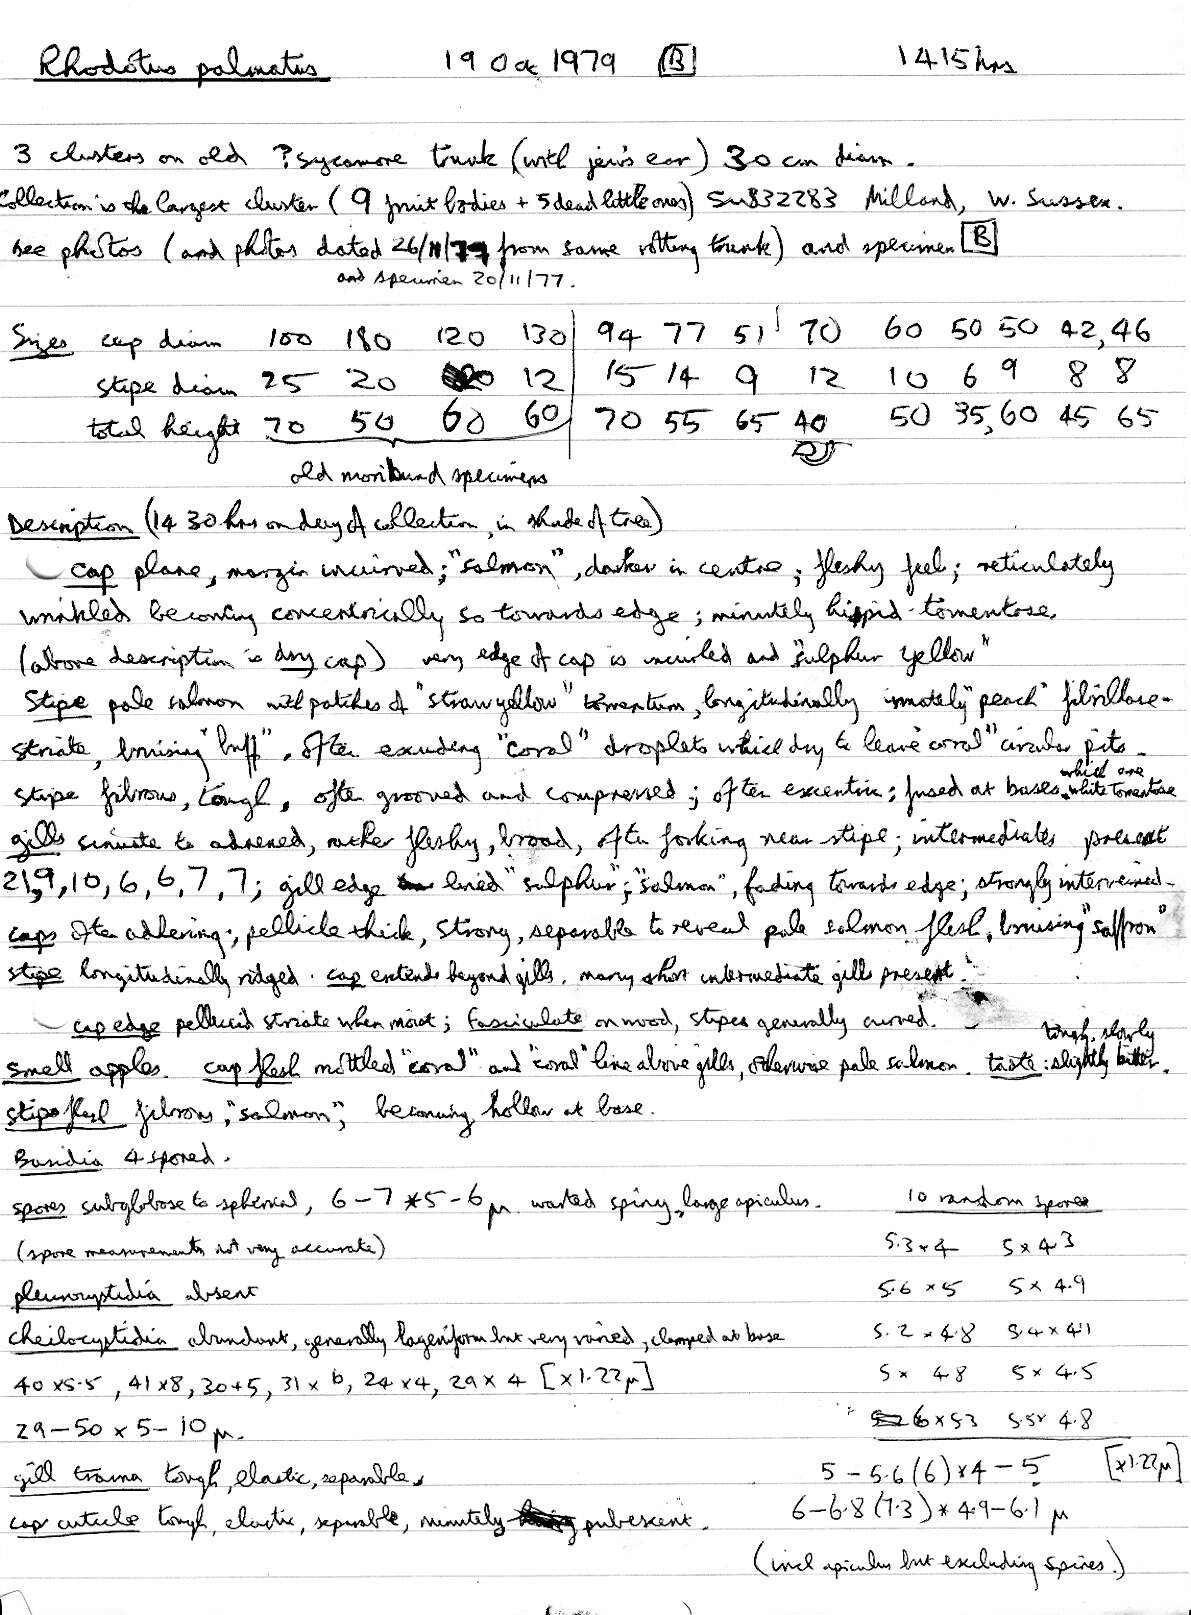 Rhodotus palmatus 19 Oct 1979 [B] 1415 hrs
3 clusters on old ? sycamore trunk (with jew's ear) 30 cm diam.
Collection is the largest cluster (9 fruit bodies + 5 dead little ones) SU832283 Milland, W. Sussex.
see photos (and photos dated 26/11/77 from same rotting trunk) and specimen [B]
and specimen 20/11/77.
Sizes cap diam 100 180 120 130 94 77 51 70 60 50 50 42, 46
stipe diam 25 20 12 15 14 9 12 10 6 9 8 8
total height 70 50 60 60 70 55 65 40 50 35, 60 45 65
old moribund specimens
Description (14 30 hrs on day of collection, in shade of tree)
cap plane, margin incurved; "salmon", darker in centre; fleshy feel; reticulately
wrinkled becoming concentrically so towards edge; minutely hispid-tomentose.
(above description is dry cap) very edge of cap is incurled and "sulphur yellow"
Stipe pale salmon with patches of "straw yellow" tomentum, longitudinally innately "peach" fibrillose-
striate, bruising "buff". often exuding "coral" droplets which dry to leave "coral" circular pits.
stipe fibrous, tough, often grooved and compressed; often excentric; fused at bases which are white tomentose
gills sinuate to adnexed, rather fleshy, broad, often forking near stipe; intermediates present
21, 9, 10, 6, 6, 7, 7; gill edge lined "sulphur"; "salmon", fading towards edge; strongly interveined.
caps often adhering; pellicle thick, strong, separable to reveal pale salmon flesh, bruising "saffron"
stipe longitudinally ridged. cap extends beyond gills. many short intermediate gills present.
cap edge pellucid striate when moist; fasciculate on wood, stipes generally curved.
smell apples. cap flesh mottled "coral" and "coral" line above gills, otherwise pale salmon. taste: tough, slowly slightly bitter.
stipe flesh fibrous, "salmon", becoming hollow at base.
Basidia 4 spored.
spores subglobose to spherical, 6 – 7 × 5 – 6 µ. warted spiny, large apiculus. 10 random spores
(spore measurements not very accurate) 5.3 × 4 5 × 4.3
pleurocystidia absent 5.6 × 5 5 × 4.9
cheilocystidia abundant, generally lageniform but very varied, clamped at base 5.2 × 4.8 5.4 × 4.1
40 × 5.5, 41 × 8, 30 × 5, 31 × 6, 24 × 4, 29 × 4 [× 1.22 µ] 5 × 4.8 5 × 4.5
29 – 50 × 5 – 10 µ. 6 × 5.3 5.5 × 4.8
gill trama tough, elastic, separable. 5 – 5.6 (6) × 4 – 5 [× 1.22 µ]
cap cuticle tough, elastic, separable, minutely pubescent. 6 – 6.8 (7.3) × 4.9 – 6.1 µ
(incl apiculus but excluding spines.)